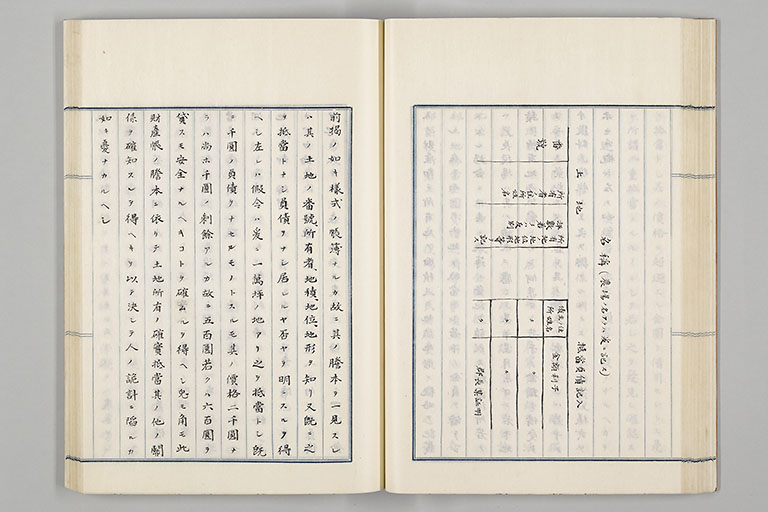 名稱(農場ノ名アレハ爰ニ記ス)
土地
抵當負債記入
番號
所有者ノ住所姓名
坪數若クハ反別
所有地ノ位地地形等ヲ記ス
債主ノ住所姓名
金額利子
郡長ノ証明
前揭ノ如キ樣式ノ帳簿ナルカ故ニ其ノ謄本ヲ一見スレ
ハ其ノ土地ノ番號所有者、地積、地位、地形ヲ知リ又既ニ之
ヲ抵當トナシ負債ヲナシ居レルヤ否ヤヲ明ニスルヲ得
ヘシ左レハ假令ハ爰ニ一萬坪ノ地アリ之ヲ抵當トシ既
ニ千圓ノ負債ヲナセルモノトスルモ其ノ價格二千圓ナ
ラハ尚ホ千圓ノ剩餘アルカ故ニ五百圓若クハ六百圓ヲ
貸スモ安全ナルヘキコトヲ確ムルヲ得ヘシ兎モ角モ此
財產帳ノ謄本ニ依リテ土地所有ノ確實抵當其ノ他ノ關
係ヲ確知スルヲ得ヘキヲ以テ決シテ人ノ詭計ニ陷ルカ
如キ憂ナカルヘシ